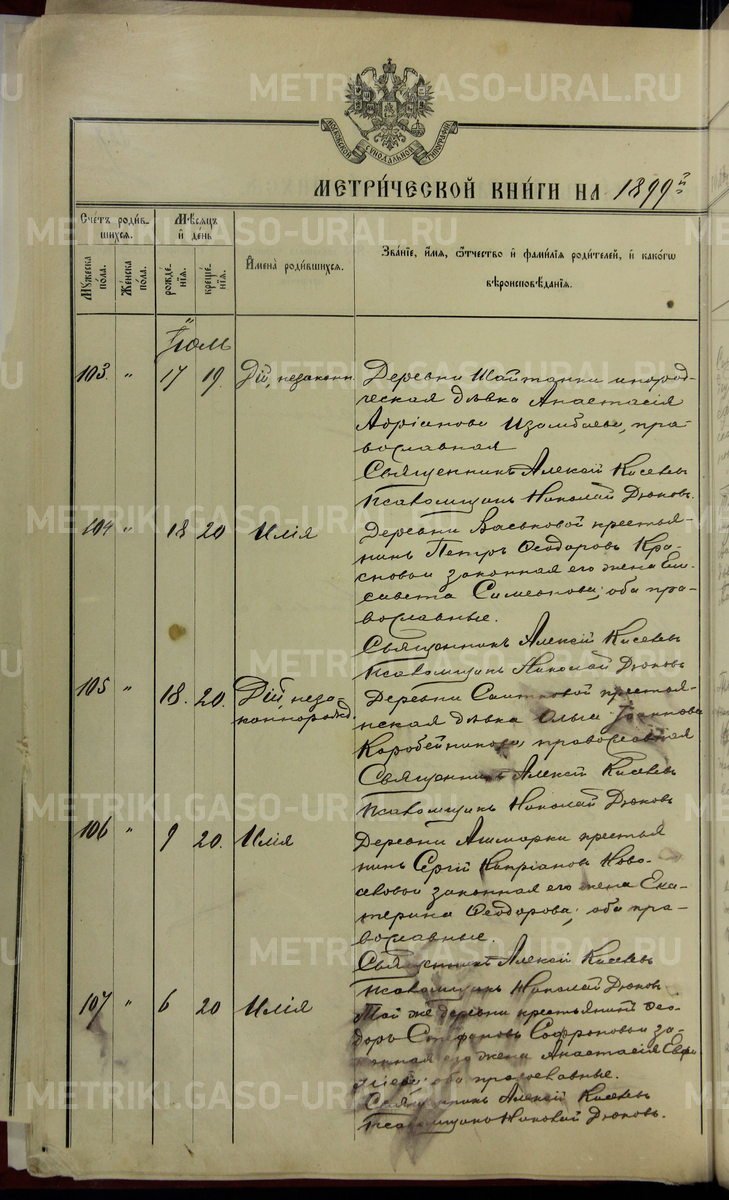 METRIKI.GASO-URAL.RU
МОСКОВСКОЙ СУНОДАЛЬНОЙ ТИПОГРАФІИ
МЕТРИ́ЧЕСКОЙ КНИ́ГИ НА 1899й
Сче́тъ роди́в-шихся.
Мѣ́сяцъ и́ де́нь
И҆мена̀ роди́вшихся.
Зва́нїе, и҆́мѧ, ѻ҆́тчество и҆ фами́лїѧ роди́телей, и҆ како́гѡ вѣроисповѣ́данїѧ.
Му́жеска по́ла.
Же́нска по́ла.
рожде-нїѧ.
креще-нїѧ.
Іюль
103. " 17 19. Дій, незаконн. Деревни Шайтанки инород-
ческая дѣвка Анастасія
Адріанова Изамбаева, пра-
вославная
Священникъ Алексій Киселевъ
Псаломщикъ Николай Дюковъ.
104 " 18 20 Илія Деревни Васьковой крестья-
нинъ Петръ Ѳеодоровъ Кра-
сновъ и законная его жена Ели-
савета Симеонова; оба пра-
вославные.
Священникъ Алексій Киселевъ
Псаломщикъ Николай Дюковъ
105 " 18. 20. Дій, неза-
коннорожд. Деревни крестья-
нская дѣвка Ольга Іоаннова
Коробейникова, православная
Священникъ Алексій Киселевъ
Псаломщикъ Николай Дюковъ
106 " 9 20. Илія Деревни Ашмарки крестья
нинъ Сергій Кипріановъ Ново-
и законная его жена Ека-
терина Ѳеодорова; оба пра-
вославные.
Священникъ Алексій Киселевъ
Псаломщикъ Николай Дюковъ
107 " 6 20 Илія Той же деревни крестьянинъ Ѳео-
доръ Стефановъ Софроновъ и за-
конная его жена Анастасія
оба православные.
Священникъ Алексій Киселевъ
Псаломщикъ Николай Дюковъ.